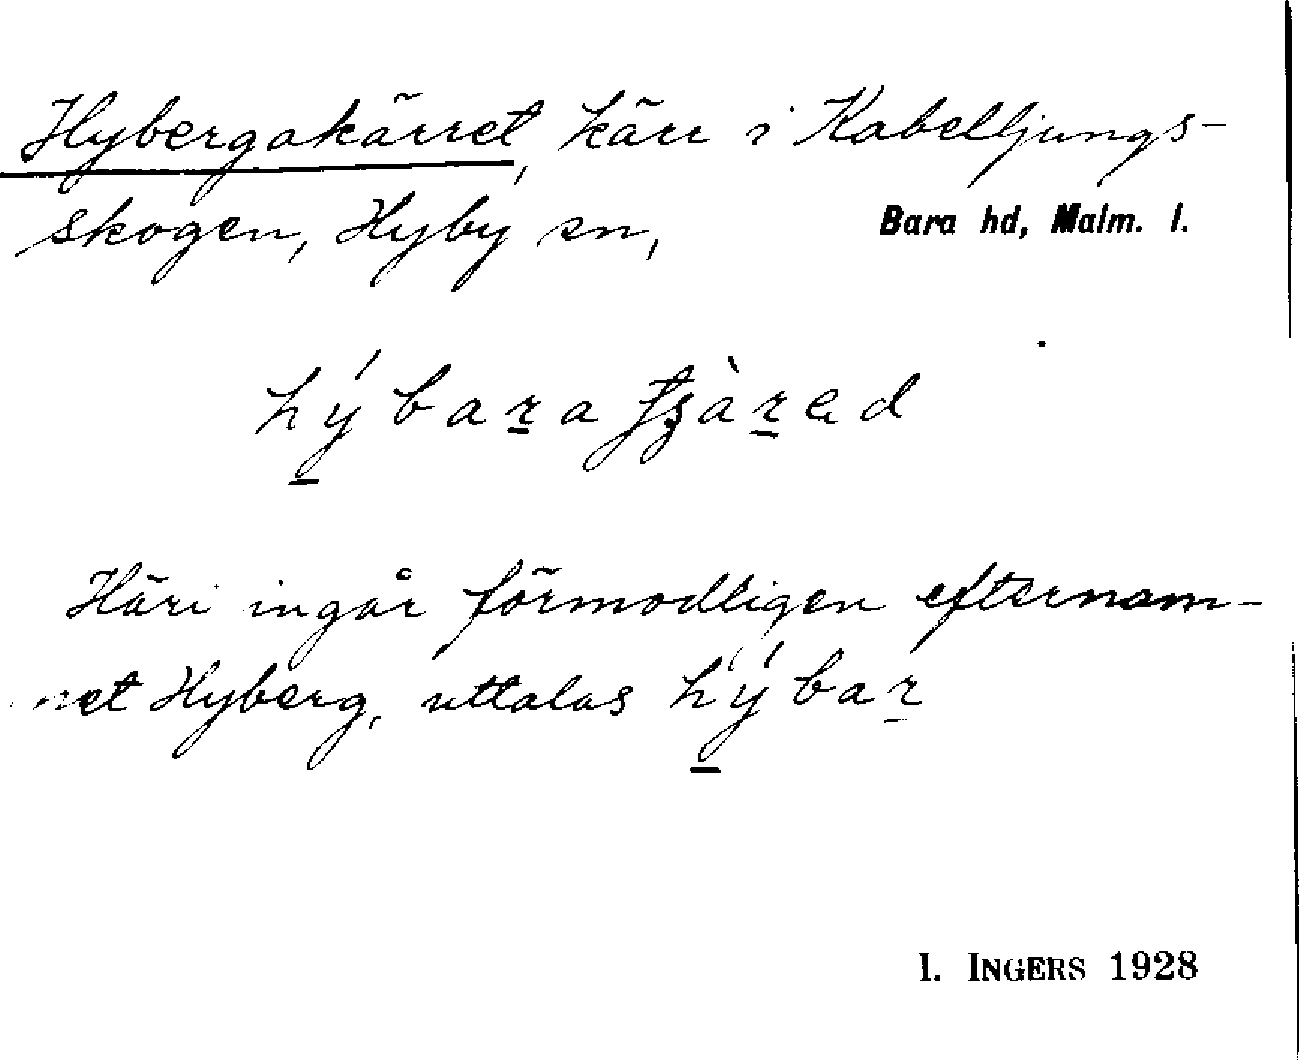 Hybergakärret, kärr i Kabelljungs-
skogen, Hyby sn, Bara hd, Malm. l.
hýbaraʈʂàrad
Häri ingår förmodligen efternam-
net Hyberg, uttalas hýbar
I. INGERS 1928